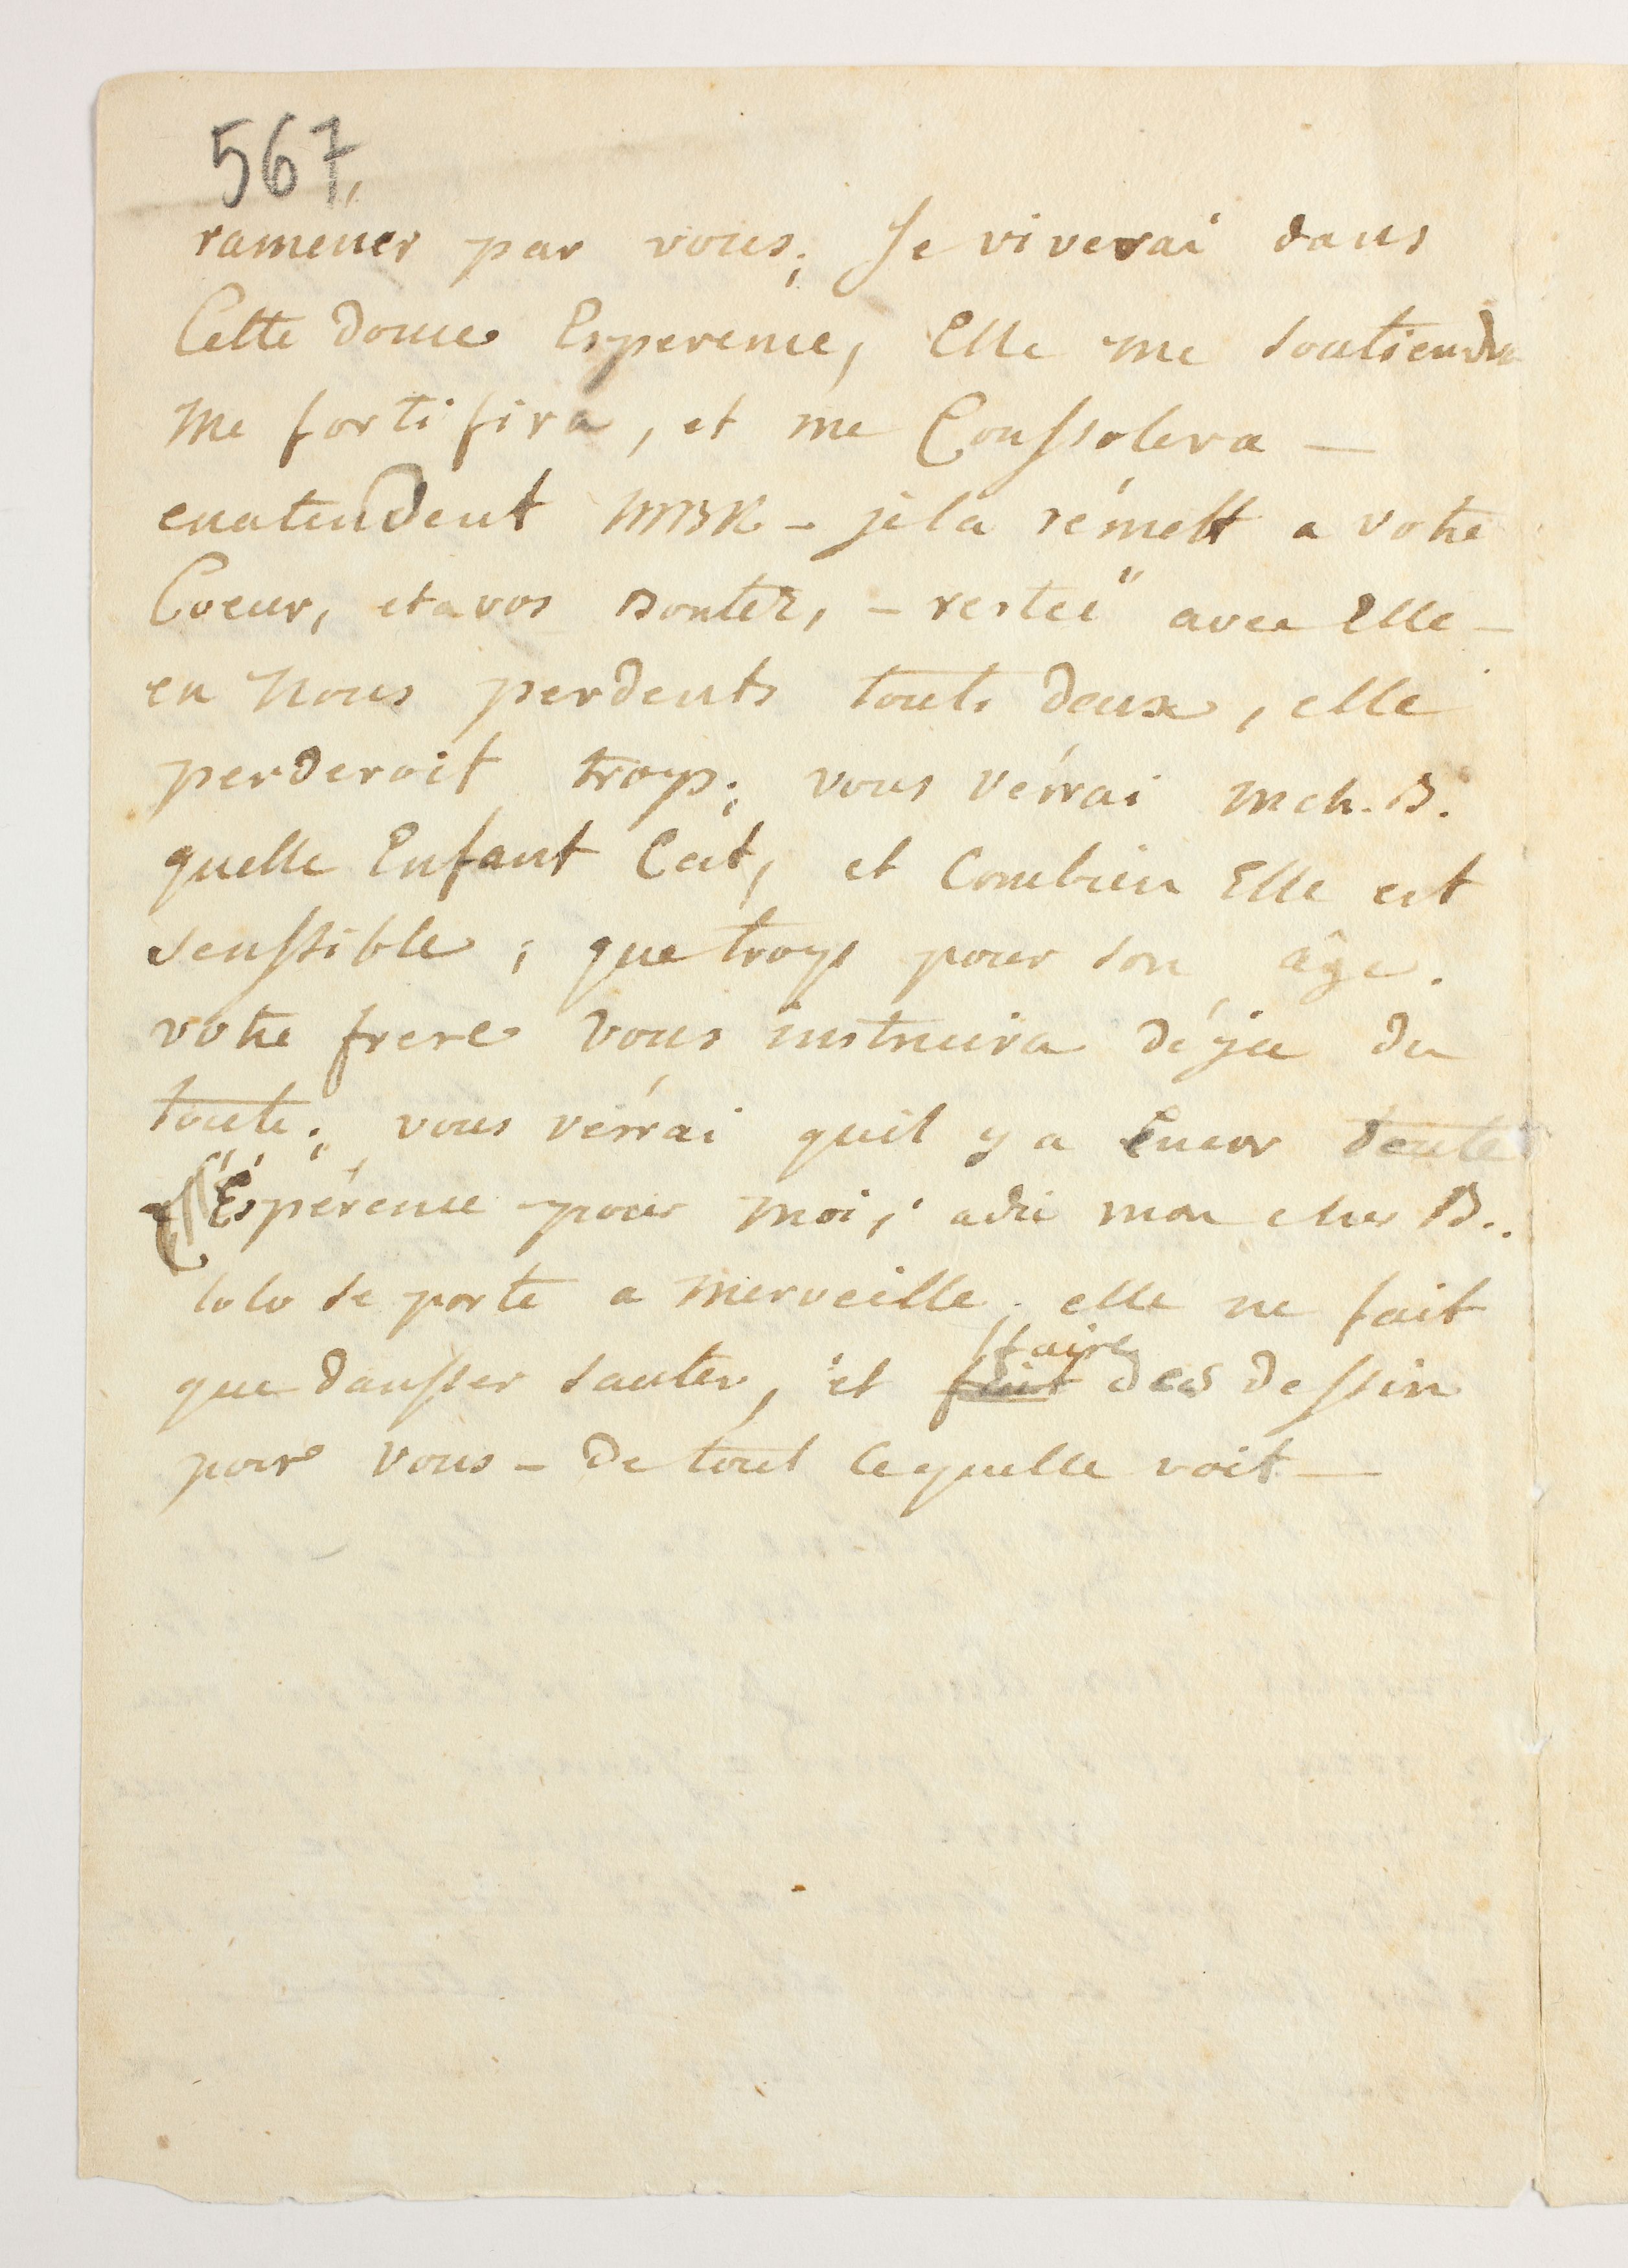 567,
ramener par vous; Je viverai dans
Cette douce Esperence, Elle me soutiendra
me fortifira, et me Conssolera —
enatendent MBK - je la rémett a votre
Coeur, et a vos Bontéz, - restéé avec Elle -
en nous perdents touts deux, elle
perderoit trop; vous vérrai mch. B.
quelle Enfant Cest, et Combien Elle est
senssible, que trop pour son âge.
votre frere vous instruira déja du
toute; vous vérrai quil y a Encor toute
Espérence pour moi, adie mon cher B.
lolo se porte a merveille. elle ne fait
que dansser sauter, et fait faire des dessin
pour vous - de tout cequelle voit —